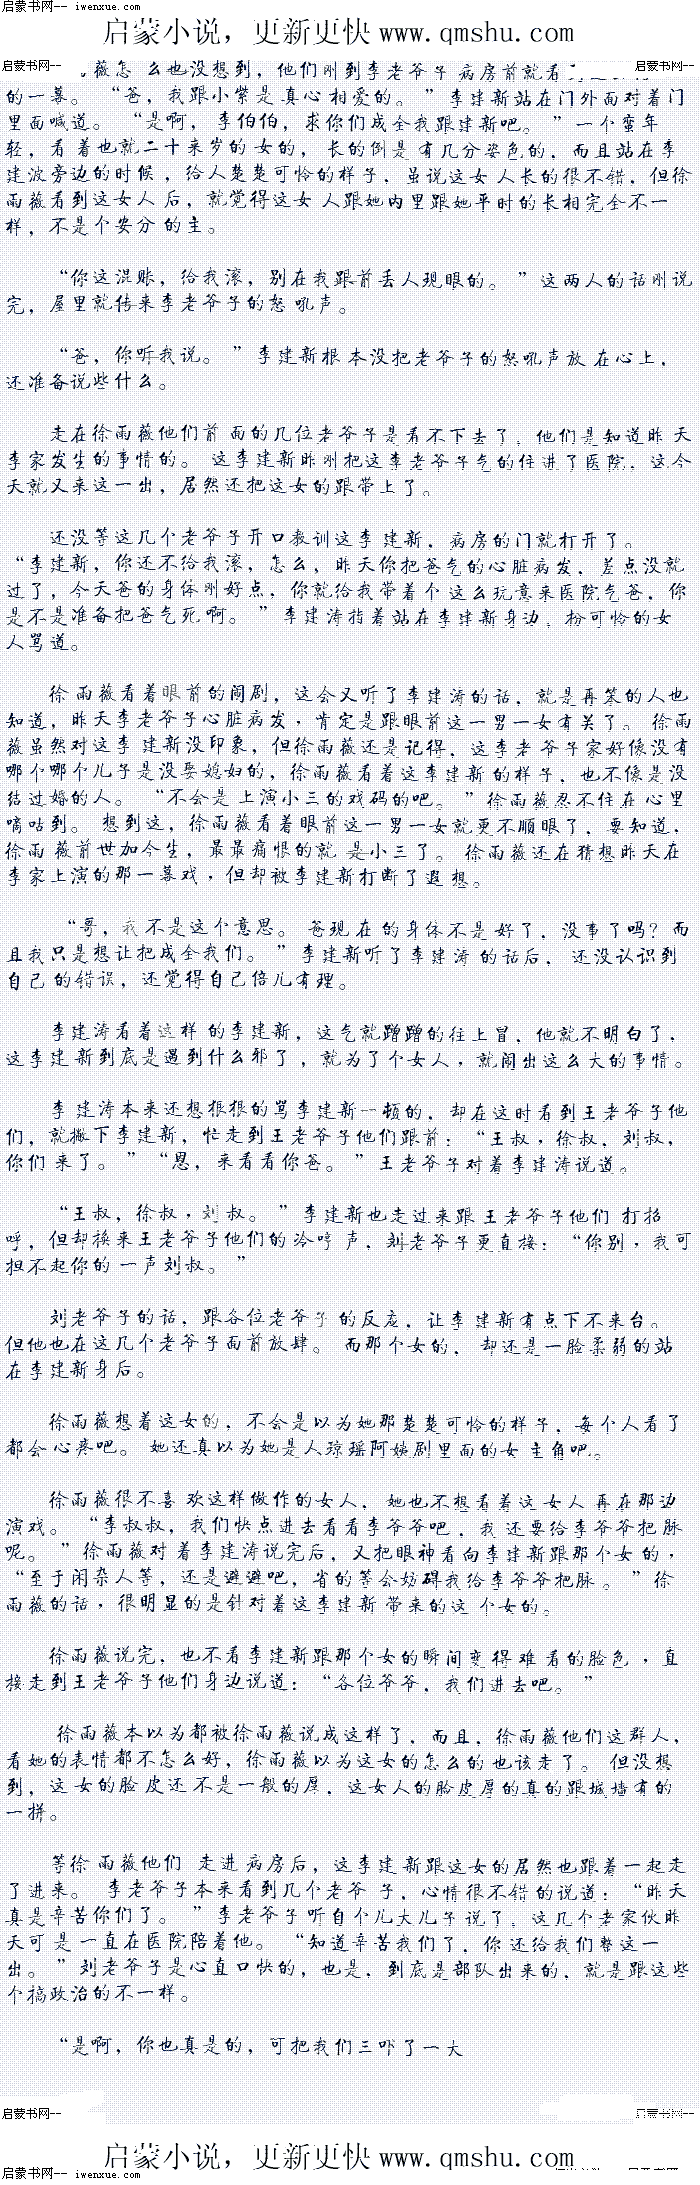 启蒙书网-- iwenxue.com
启蒙小说，更新更快 www.qmshu.com
启蒙书网-- 启蒙书网--
薇怎 么也没想到，他们刚到李老爷子 病房前就看
的一幕。 “爸，我跟小紫是 真心 相爱的。 ” 李 建新站在门外面对着门
里面喊道。 “是啊， 李伯伯，求你们成全我跟建新吧。 ” 一个 蛮年
轻，看 着也就二十来岁的 女的， 长的倒是 有几分姿色的，而且站在李
建波旁边的时候 ，给人楚楚可怜的样子，虽说这女 人长的很不错，但徐
雨薇看到这女人 后，就觉得这女 人跟她内里跟她平时的长相完全不一
样，不是个安分 的主。
“你这混账，给我滚，别在我跟前丢人现眼的。 ” 这两人的话刚说
完，屋里就传来李老爷子的怒 吼声。
“爸，你听我说。 ” 李建新根 本没把老爷子的怒吼声放 在心上，
还准备说些什么。
走在徐雨薇他们前 面的几位老爷子是看不下去了，他们是知道昨 天
李家发生的事情的。 这李建新昨刚把这李老爷子气的住进了医院，这今
天就又来这一出，居然还把这女的跟带上了。
还没等这几个老爷子开口教训这李 建新，病房的门就打开了。
“李建新，你还不给我滚，怎么，昨天你把爸气的心脏病发，差点没就
过了，今天爸的身体刚好点，你就给我带着个 这么玩意来医院气爸，你
是不是准备把爸气死 啊。 ” 李建涛指着站在李建新身边，扮可怜的女
人骂道。
徐 雨薇看着眼前的闹剧，这会又听了李建涛的话，就是再笨的人也
知道，昨天李老爷子心脏病发，肯定是跟眼前这一男一女有关了。 徐雨
薇虽然对这李 建新没印象，但徐雨薇还是记得，这李老 爷子家好像没有
哪个哪个儿子是没娶媳妇的，徐雨薇看着这李建新 的样子，也不像是没
结过婚的人。 “不会是 上演小三的戏码的吧。 ” 徐雨薇忍不住在 心里
嘀咕到。 想到这，徐雨薇看着眼前这一男一女就更不顺眼了，要知道，
徐雨 薇前世加今生，最最痛恨的就 是小三了。 徐雨薇还在猜想昨天在
李家上演的那一幕戏，但却被李建新打断了遐 想。
“哥，我不是这个意思。 爸现在 的身体不是 好了，没事了吗？而
且我只是想让把成全我们。 ” 李建新听了李建涛 的话后， 还没认识到
自己 的错误，还觉得自己倍儿有理。
李建涛看着这样 的李建新，这气就蹭蹭的往上冒，他就不明白了，
这李建新到底是遇到什么邪了 ，就为了个女人，就闹出这么大的事情。
李 建涛本来还想狠狠的骂李建新一顿的，却在这时看到王老爷子他
们，就撇下李建新，忙走到王老爷子他们跟前：“王叔，徐叔，刘叔，
你们 来了。 ” “恩，来看看你爸。 ” 王老爷子对着李建涛说道。
“王叔，徐叔，刘叔。 ” 李建新也走过来跟 王老爷子他们 打招
呼，但却换来王老爷子他们的 冷哼 声，刘老爷子更直接：“你别，我可
担不起你的 一声刘叔。”
刘老爷子的话，跟各位老爷子 的反应，让李 建新有点下不来台。
但他也在这几个老爷子面前放肆。 而那个女的， 却还是一脸柔弱的站
在李建新身后。
徐雨薇想着这女的，不会是以为她那楚楚可怜的样子，每个人看了
都会 心疼吧。 她还真以为她是人琼瑶阿姨剧里面的女 主角吧。
徐雨薇很不喜 欢这样做作的女人， 她也不想看着这 女人 再在那边
演戏。 “李叔叔，我们快点进去看看李爷爷吧，我 还要给李爷爷把脉
呢。 ” 徐雨薇对 着李建涛说完后，又把眼神看向李建新跟那个女 的，
“至于闲杂人等，还是避避吧，省的等会妨碍我给李爷爷把脉。 ” 徐
雨薇的话，很明显的是针对着这李建新 带来的这 个女的。
徐雨薇说完，也不看李建新跟那个女的瞬间变得 难 看的脸色 ，直
接走到王老爷子他们身边说道：“各位爷爷，我们进去吧。”
徐雨薇本以为都被徐雨薇说成这样了，而且，徐雨薇他们这群人，
看她的表情都不怎么好，徐雨薇以为这女的怎么的 也该走了。 但没想
到，这 女的脸 皮还 不是一般的厚，这女人的脸皮厚的真的跟城墙有的
一拼。
等徐 雨薇他们 走进 病房后，这李建 新跟这女的居然也跟着一起走
了进来。 李老爷子本来看到几个老爷 子，心情很不错 的说道：“昨天
真是辛苦你们了。 ” 李老爷子听自个儿大儿子 说了，这几个老家伙昨
天可 是 一直在医院陪着他。 “知道辛苦我们了，你 还给我们整这一
出。 ” 刘老爷子是心直口快的，也是，到底是部队出来的，就是跟这些
个搞政治的不一样。
“是啊，你也真是的，可把我们三吓了一大
启蒙书网-- 启蒙书网--
启蒙小说，更新更快 www.qmshu.com
启蒙书网-- iwenxue.com